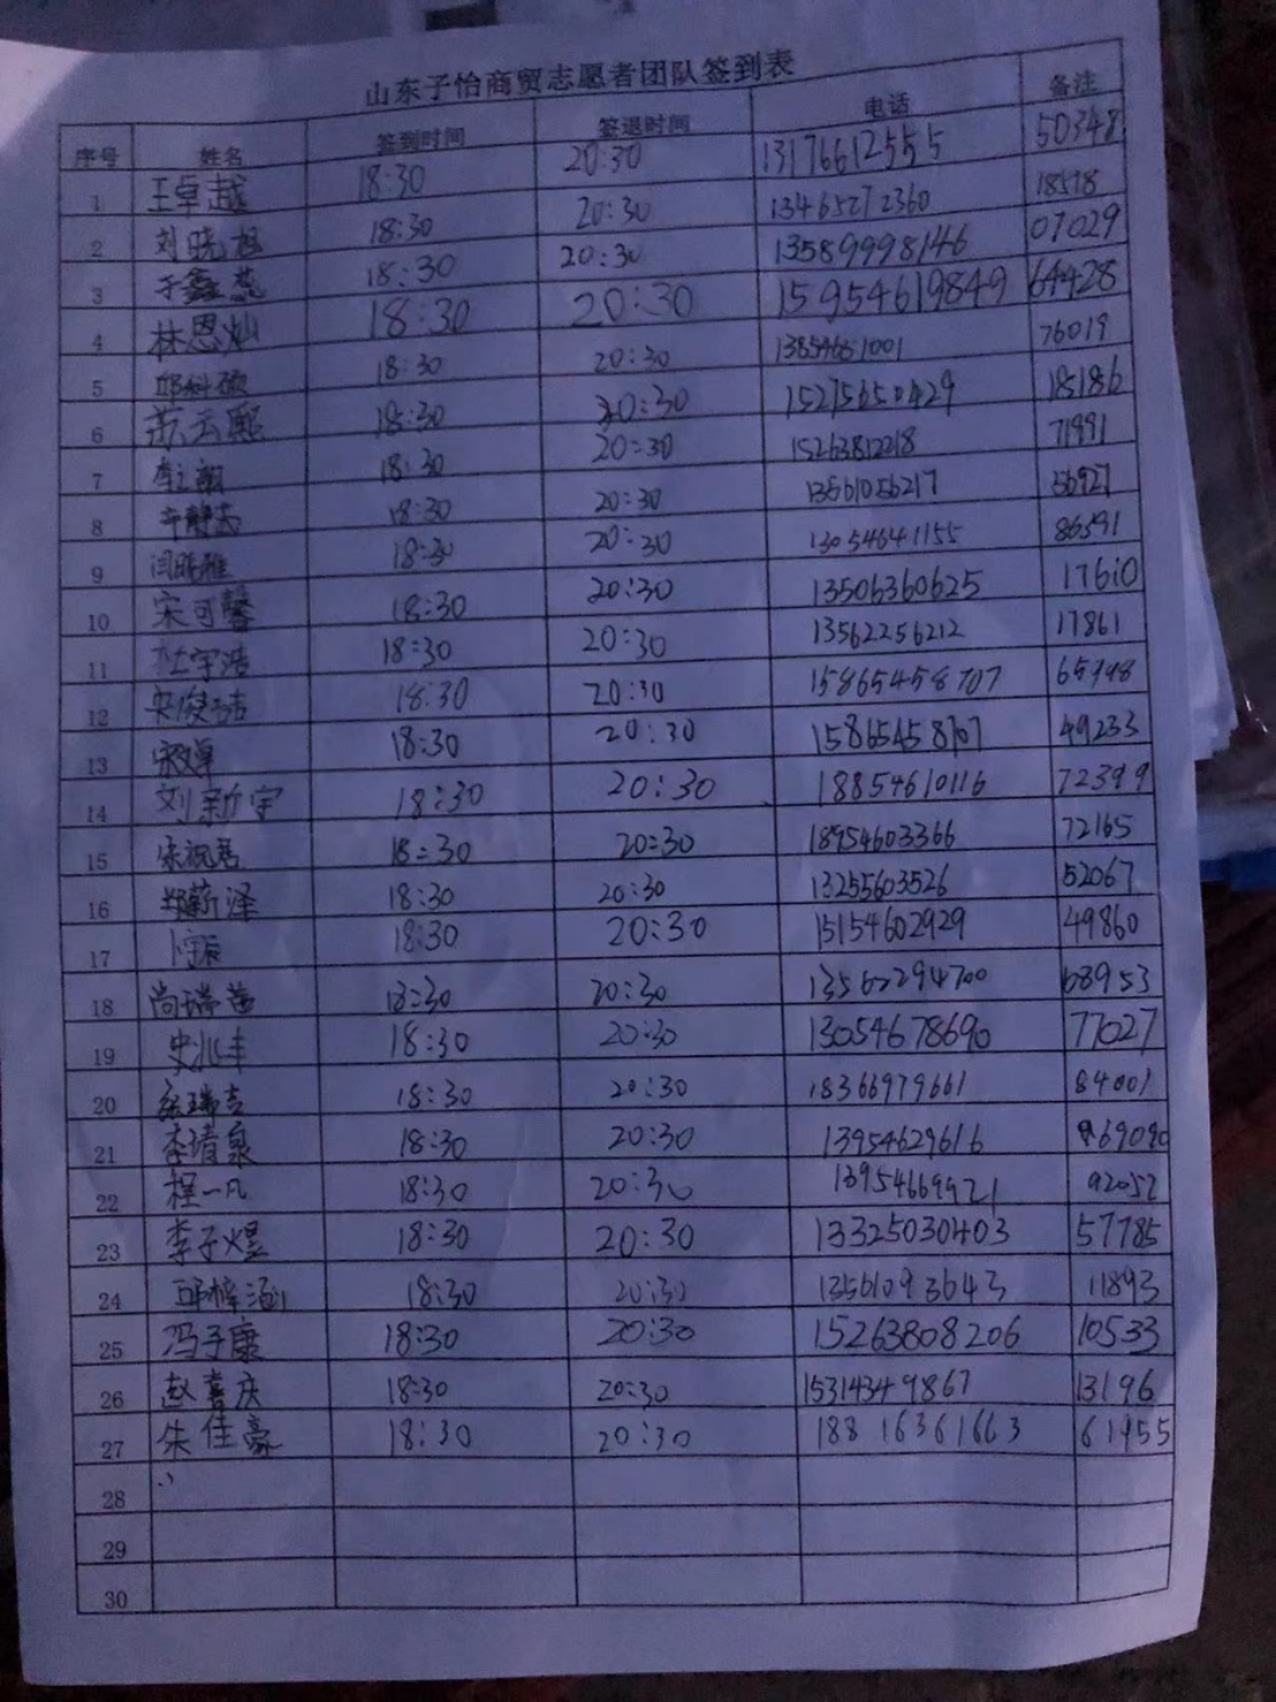 山东子怡商贸志愿者团队签到表
序号 姓名 签到时间 签退时间 电话 备注
1 王卓越 18:30 20:30 13176612555 50348
2 刘晓旭 18:30 20:30 13465272360 18518
3 于鑫蕊 18:30 20:30 13589998146 07029
4 林恩灿 18:30 20:30 15954619849 64428
5 邱科硕 18:30 20:30 13854681001 76019
6 苏云熙 18:30 20:30 15275650429 18186
7 18:30 20:30 15263812218 71991
8 18:30 20:30 13561056217 56927
9 闫晓雅 18:30 20:30 13054641155 86591
10 宋可馨 18:30 20:30 13506360625 17610
11 杜宇浩 18:30 20:30 13562256212 17861
12 宋俊洁 18:30 20:30 15865458707 65998
13 18:30 20:30 15865458707 49233
14 刘新宇 18:30 20:30 18854610116 72399
15 宋祝君 18:30 20:30 18954603366 72165
16 郑蕲泽 18:30 20:30 13255603526 52067
17 18:30 20:30 15154602929 49860
18 尚瑞茜 18:30 20:30 13562294700 68953
19 史兆丰 18:30 20:30 13054678690 77027
20 徐瑞吉 18:30 20:30 18366979661 84001
21 李清泉 18:30 20:30 13954629616 69090
22 程一凡 18:30 20:30 13954669921 92052
23 李子煜 18:30 20:30 13325030403 57785
24 邱梓涵 18:30 20:30 13561093643 11893
25 冯子康 18:30 20:30 15263808206 10533
26 赵喜庆 18:30 20:30 15314349867 13196
27 朱佳豪 18:30 20:30 18816361663 61955
28
29
30